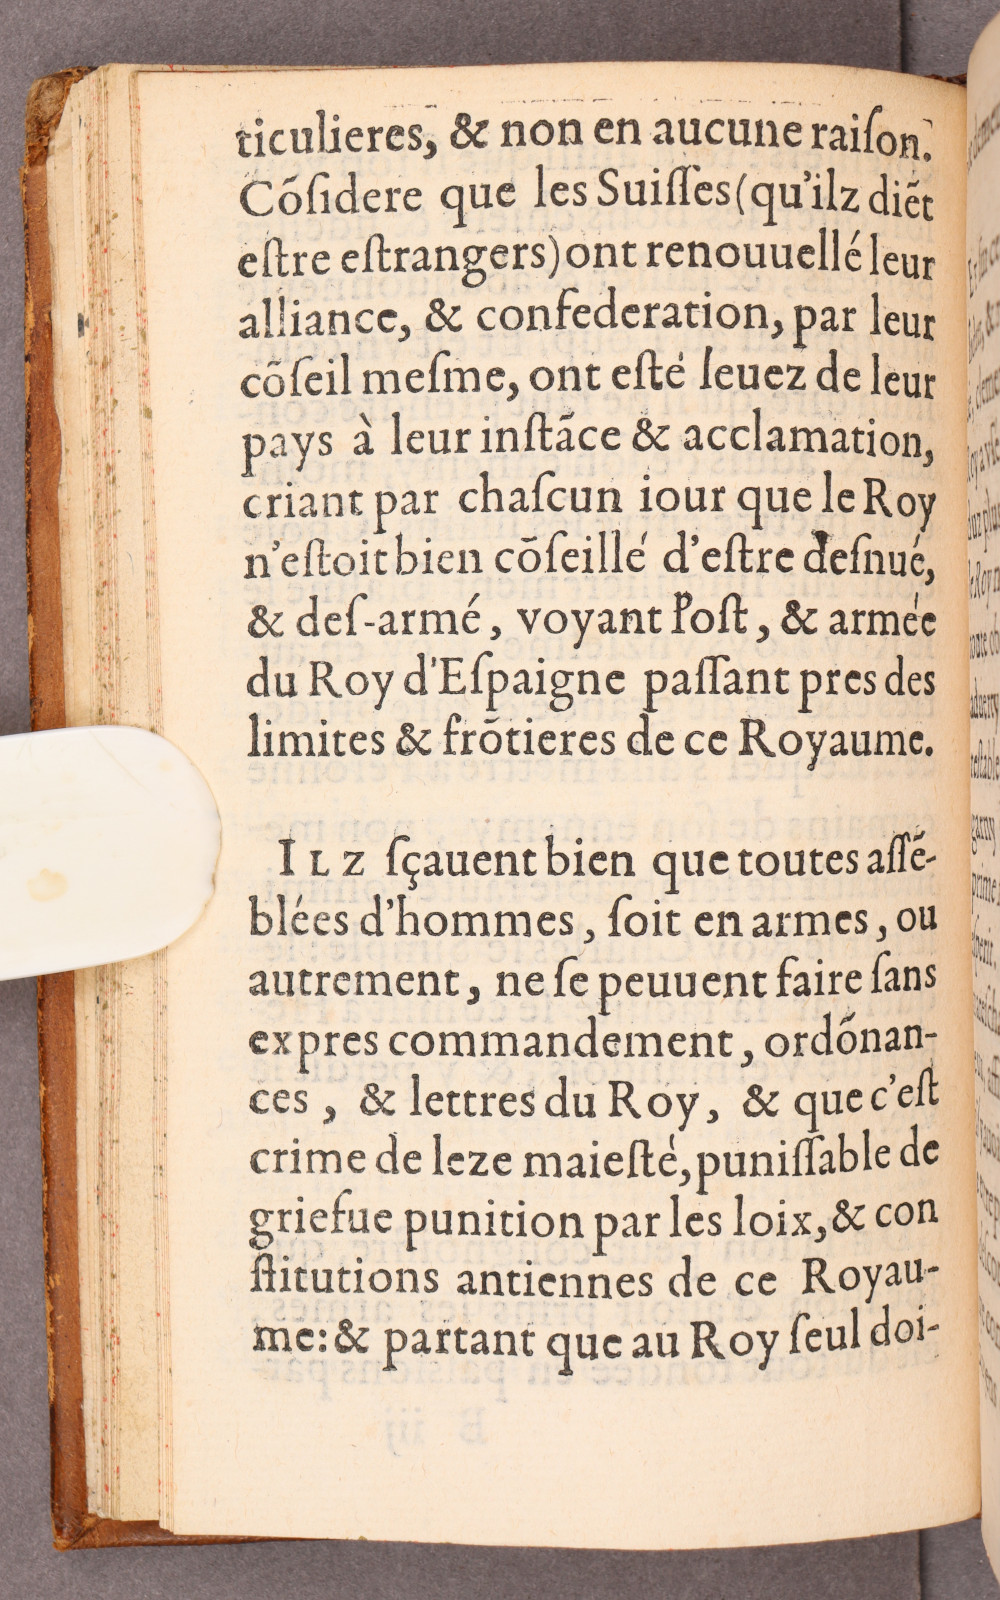 ticulieres, & non en aucune raiſon.
Cõſidere que les Suiſſes (qu'ilz diẽt
eſtre eſtrangers) ont renouuellé leur
alliance, & confederation, par leur
cõſeil meſme, ont eſté leuez de leur
pays à leur inſtãce & acclamation,
criant par chaſcun iour que le Roy
n'eſtoit bien cõſeillé d'eſtre deſnué,
& deſ-armé, voyant l'oſt, & armée
du Roy d'Eſpaigne paſſant pres des
limites & frõtieres de ce Royaume.
ILZ ſçauent bien que toutes aſſẽ-
blées d'hommes, ſoit en armes, ou
autrement, ne ſe peuuent faire ſans
expres commandement, ordõnan-
ces, & lettres du Roy, & que c'eſt
crime de leze maieſté, puniſſable de
griefue punition par les loix, & con
ſtitutions antiennes de ce Royau-
me: & partant que au Roy ſeul doi-